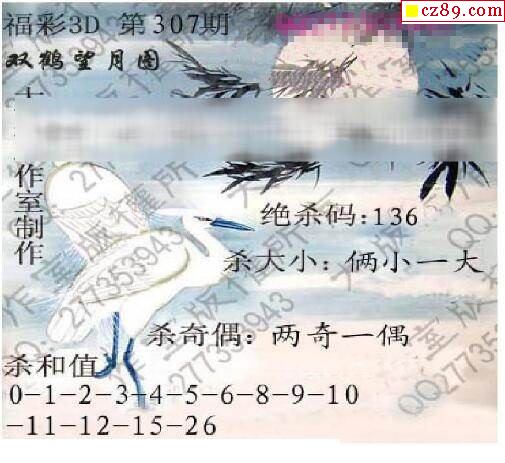 cz89.com
福彩3D 第307期
双鹤望月图
作室制作
绝杀码:136
杀大小: 俩小一大
杀奇偶: 两奇一偶
杀和值
0-1-2-3-4-5-6-8-9-10
-11-12-15-26